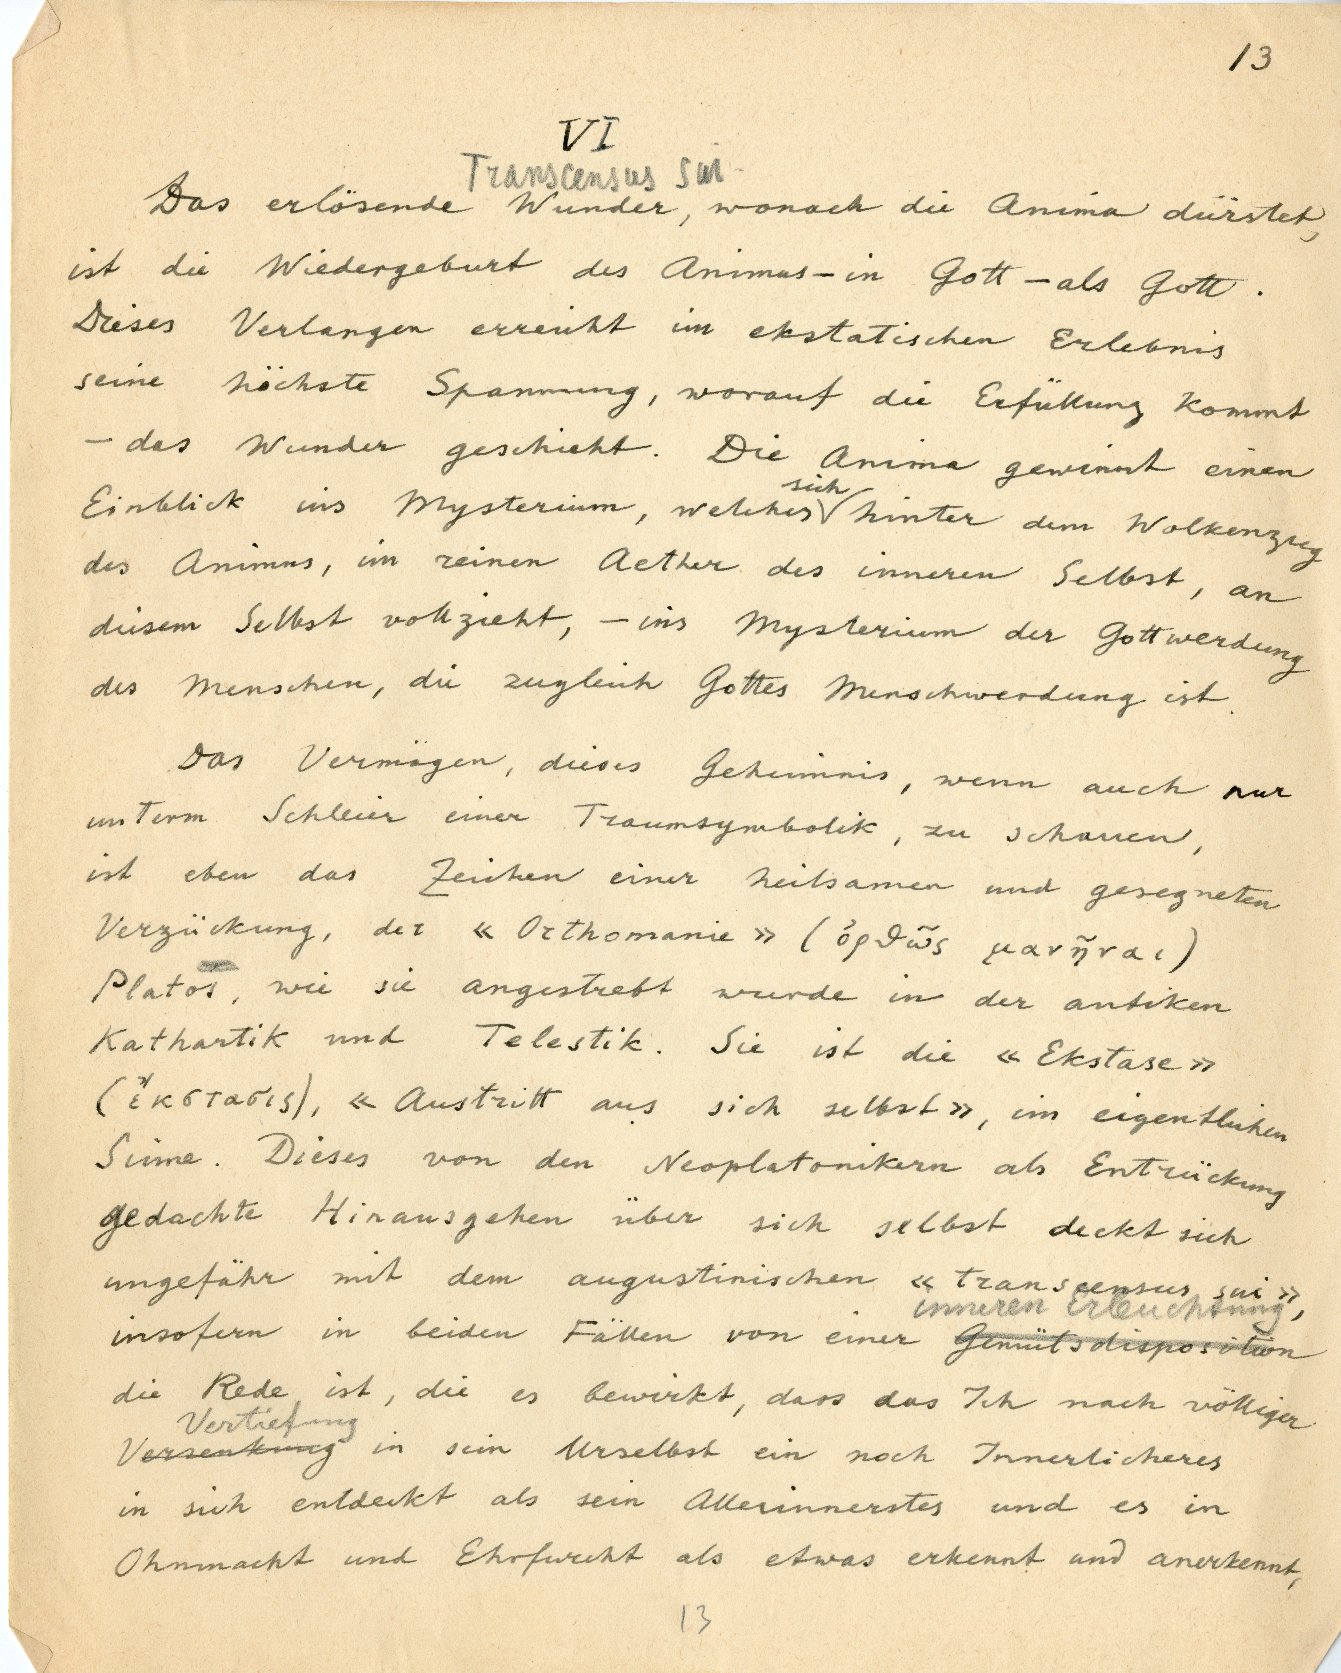 13
VI
Transcensus sui
Das erlösende Wunder, wonach die Anima dürstet,
ist die Wiedergeburt des Animus – in Gott – als Gott.
Dieses Verlangen erreicht im ekstatischen Erlebnis
seine höchste Spannung, worauf die Erfüllung kommt
– das Wunder geschieht. Die Anima gewinnt einen
sich
Einblick ins Mysterium, welches hinter dem Wolkenzug
des Animus, im reinen Aether des inneren Selbst, an
diesem Selbst vollzieht, – ins Mysterium der Gottwerdung
des Menschen, die zugleich Gottes Menschwerdung ist.
Das Vermögen, dieses Geheimnis, wenn auch nur
unterm Schleier einer Traumsymbolik, zu schauen,
ist eben das Zeichen einer heilsamen und gesegneten
Verzückung, der « Orthomanie » (ὀρϑῶς μανῆναι)
Platos, wie sie angestrebt wurde in der antiken
Kathartik und Telestik. Sie ist die « Ekstase »
(ἔκστασις), « Austritt aus sich selbst », im eigentlichen
Sinne. Dieses von den Neoplatonikern als Entrückung
gedachte Hinausgehen über sich selbst deckt sich
ungefähr mit dem augustinischen « transcensus sui »,
inneren Erleuchtung
insofern in beiden Fällen von einer Gemütsdisposition
die Rede ist, die es bewirkt, dass das Ich nach völliger
Vertiefung
Versenkung in sein Urselbst ein noch Innerlicheres
in sich entdeckt als sein Allerinnerstes und es in
Ohnmacht und Ehrfurcht als etwas erkennt und anerkennt,
13